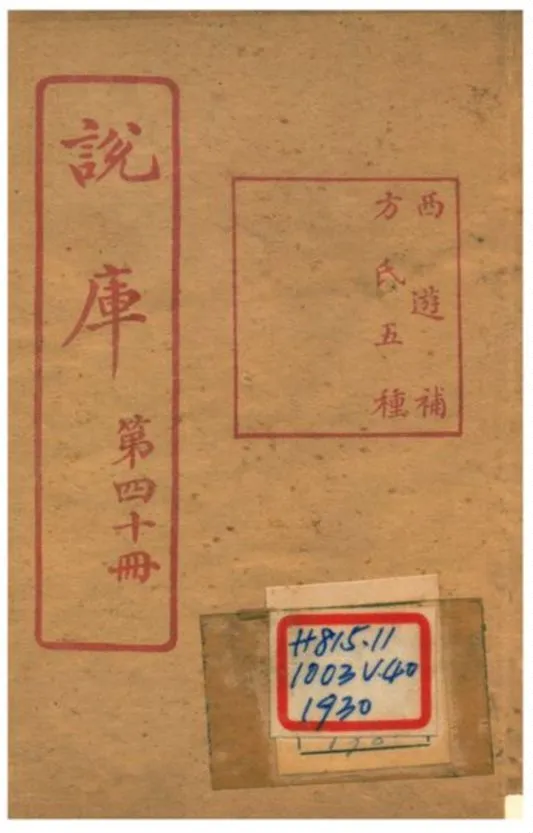 西遊補
方氏五種
說庫
第四十冊
H815.11
1003 V.40
1930